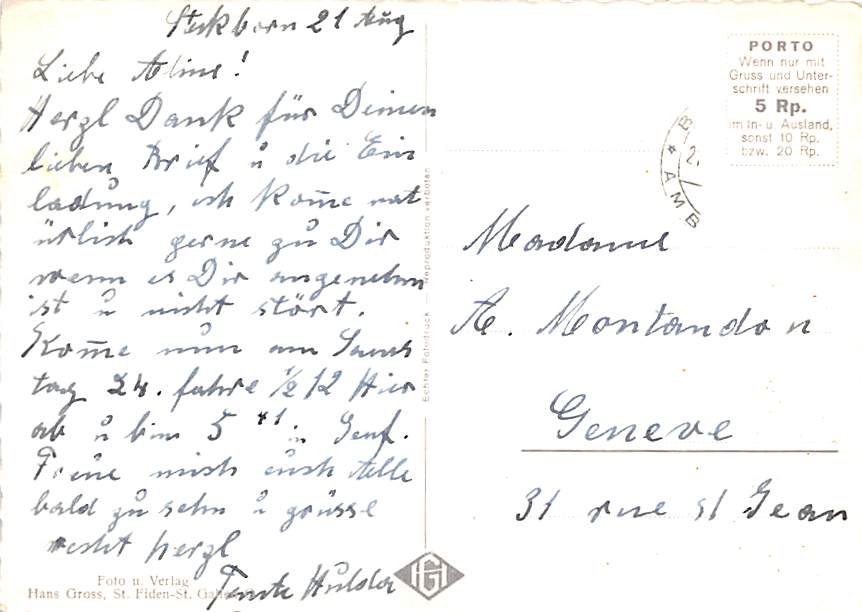 Steckborn 21 Aug
Liebe Aline!
Herzl Dank für Deinen
lieben Brief u die Ein
ladung, ich kom̅e nat
ürlich gerne zu Dir
wenn es Dir angenehm
ist u nicht stört.
Kom̅e nun am Sams
tag 24. fahre ½ 12 Hier
ab u bin 5 41 in Genf.
Freue mich euch alle
bald zu sehn u grüsse
recht herzl
Tante Hulda
Foto u. Verlag
Hans Gross, St. Fiden-St. Gallen
Echter Fotodruck — Reproduktion verboten
HG
PORTO
Wenn nur mit
Gruss und Unter-
schrift versehen
5 Rp.
im In- u. Ausland,
sonst 10 Rp.
bzw. 20 Rp.
B
2.
* AMB
Madame
A. Montandon
Geneve
31 rue St Jean